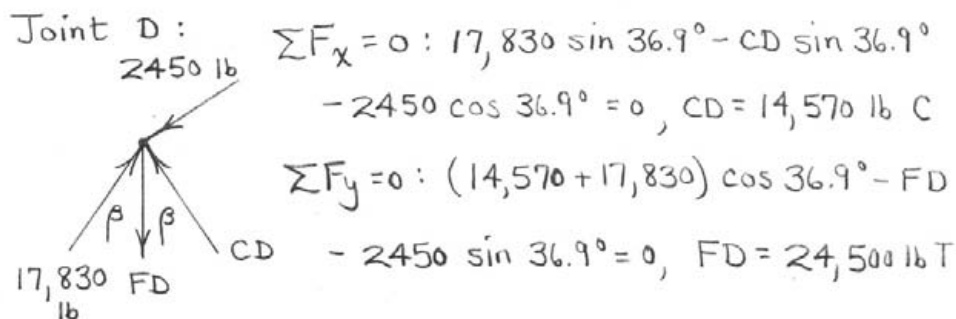 Joint D:
2450 lb
β β
17,830 lb
FD
CD
ΣFx = 0 : 17,830 sin 36.9° - CD sin 36.9°
- 2450 cos 36.9° = 0, CD = 14,570 lb C
ΣFy = 0 : (14,570 + 17,830) cos 36.9° - FD
- 2450 sin 36.9° = 0, FD = 24,500 lb T